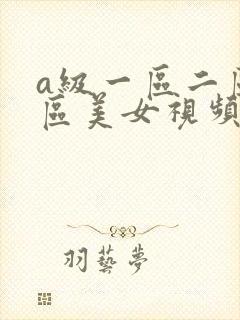 a級一區二
區美女視頻
羽藝夢